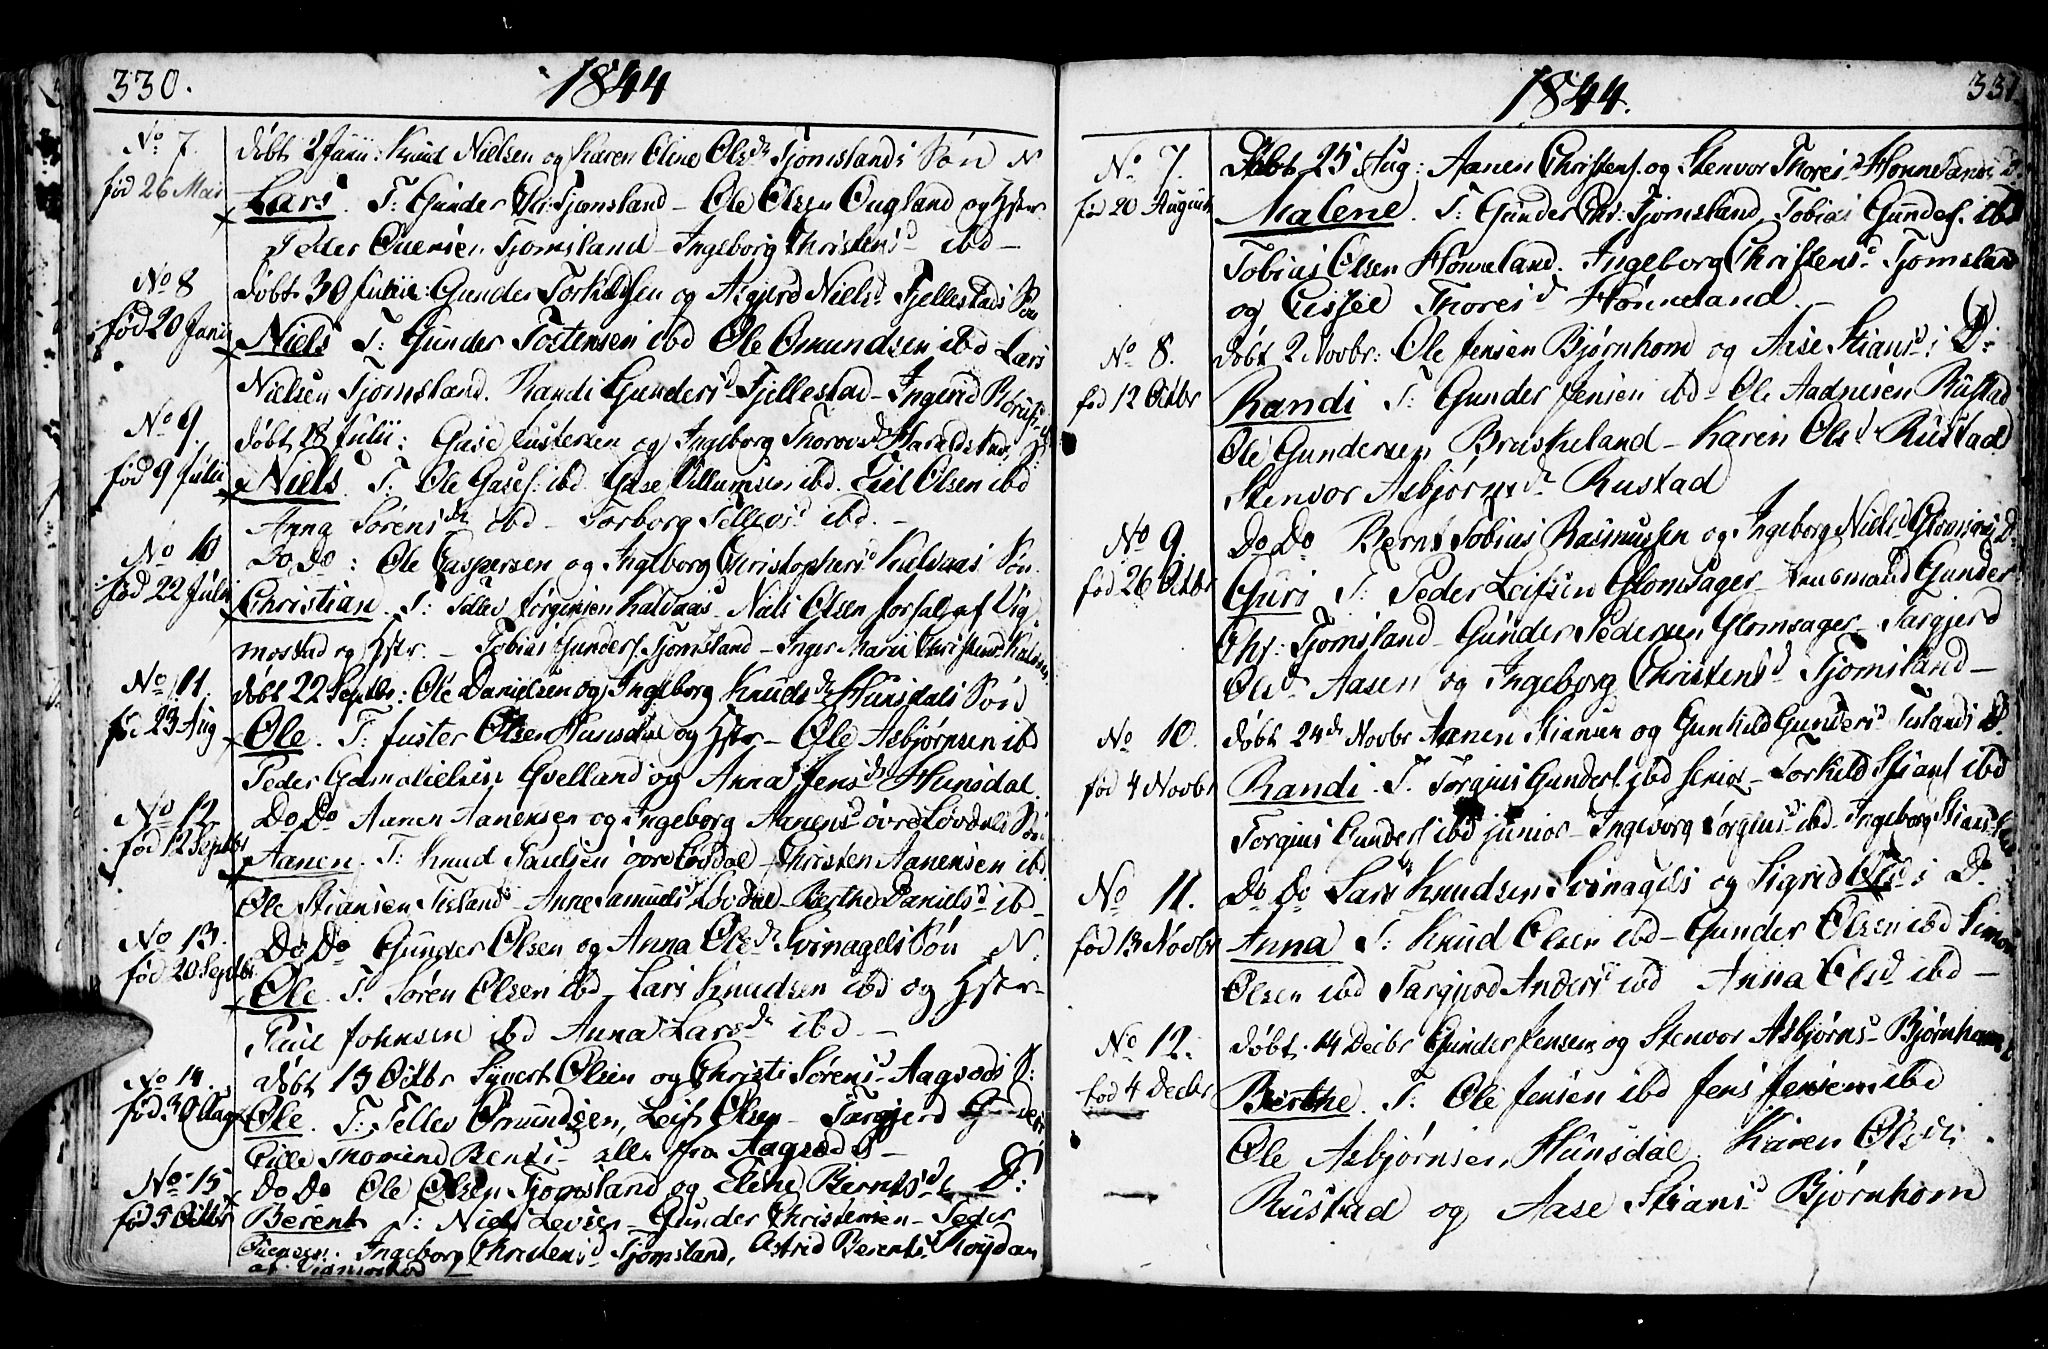 330.
1844
No 7.
fød 26 Mai
døbt 2 Junii: Knud Nielsen og Karen Eline Olsd Tjomslands Søn N
Lars. T: Gunder Chr: Tjomsland – Ole Olsen Øugland og Hstr
Peder Tjomsland – Ingeborg Christensd ibd –
No 8
fød 20 Junii
døbt 30 Junii: Gunder Torkildsen og Asgjerd Nielsd Fjellestads Søn
Niels T: Gunder Tostensen ibd Ole Omundsen ibd Lars
Nielsen Tjomsland. Randi Gundersd Fjellestad – Ingerid
No 9.
fød 9 Julii
døbt 18 Julii: Gase Justersen og Ingeborg Thorovsd Haraldstad
Niels. T: Ole Gases. ibd Gase Villumsen ibd. Eiel Olsen ibd
Anna Sørensdr ibd – Torborg Tellevsd ibd. –
No 10
fød 22 Julii
Do Do: Ole Caspersen og Ingeborg Christophersd Kalvaas Søn
Christian. T: Tellev Jørgensen Kalvaas Niels Olsen af Vig
mostad og Hstr. – Tobias Gunders. Tjomsland – Inger Marie
No 11.
fød 23 Aug
døbt 22 Septbr: Ole Danielsen og Ingeborg Knudsdr Hunsdals Søn
Ole. T: Juster Olsen Hunsdal og Hstr – Ole Asbjørnsen ibd
Peder Gamalielsen Qvelland og Anna Jensdr Hunsdal.
No 12
fød 12 Septbr
Do Do Aanen Aanensen og Ingeborg Aanensd øvre Løvdals Søn
Aanen. T: Knud Paulsen øvre Løvdal – Christen Aanensen ibd
Ole Stiansen Tisland – Anne Samuelsd Løvdal – Berthe Danielsd ibd –
No 13.
fød 20 Septbr
Do Do Gunder Olsen og Anna Olsdr Svinagels Søn N:
Ole. T: Søren Olsen ibd Lars Knudsen ibd og Hstr –
Paul Johnsen ibd Anna Larsdr ibd –
No 14.
fød 30 Aug
døbt 13 Octbr Syvert Olsen og Christi Sørensd Aagsøds S:
Ole. T: Tellev Omundsen, Leif Olsen – Targjerd
Bentsd alle fra Aagsøds –
No 15
fød 5 Octbr
Do Do Ole Olsen Tjomsland og Eline Berntsd D:
Berent T: Niels Levsen – Gunder Christensen – Peder
Ingeborg Christensd Tjomsland, Astrid Berentsd Røydan
af Vigmostad
1844.
331.
No 7.
fød 20 August
Døbt 25 Aug: Aanen Christens. og Stenvor Thoresd Hønnelands D:
Malene. T: Gunder Chr: Tjomsland, Tobias Gunders. ibd
Tobias Olsen Hønneland. Ingeborg Christensd Tjomsland
og Cissel Thoresd Hønneland. –
No 8.
fød 12 Octbr
døbt 2 Novbr: Ole Jensen Bjørnhom og Aase Stiansd: D:
Randi T: Gunder Jensen ibd – Ole Aadnesen Rustad
Ole Gundersen Bruskeland – Karen Olsd Rustad
Stenvor Asbjørnsdr Rustad
No 9.
fød 26 Octbr
Do Do Bernt Tobias Rasmussen og Ingeborg Nielsd Glomsager D:
Guri T: Peder Leifsen Glomsager – Gunder
Chr: Tjomsland – Gunder Pedersen Glomsager – Targjerd
Olsdr Aasen og Ingeborg Christensd Tjomsland –
No 10.
fød 4 Novbr
døbt 24de Novbr Aanen Stiansen og Gunhild Gundersd Tislands D.
Randi. T. Torgius Gunders. ibd senior – Torkild Stians. ibd
Torgius Gunders. ibd junior – Ingeborg Torgiusd ibd – Ingeborg
No 11.
fød 13 Novbr
Do Do Lars Knudsen Svinagels og Sigrid Olsd: D.
Anna T: Knud Olsen ibd – Gunder Olsen ibd Simon
Olsen ibd Targjerd Andersd ibd Anna Olsd ibd –
No 12.
fød 4 Decbr
døbt 14 Decbr Gunder Jensen og Stenvor Asbjørnsd Bjørnhoms
Berthe. T: Ole Jensen ibd Jens Jensen ibd
Ole Asbjørnsen Hunsdal. Karen Olsdr
Rustad og Aase Stiansd Bjørnhom